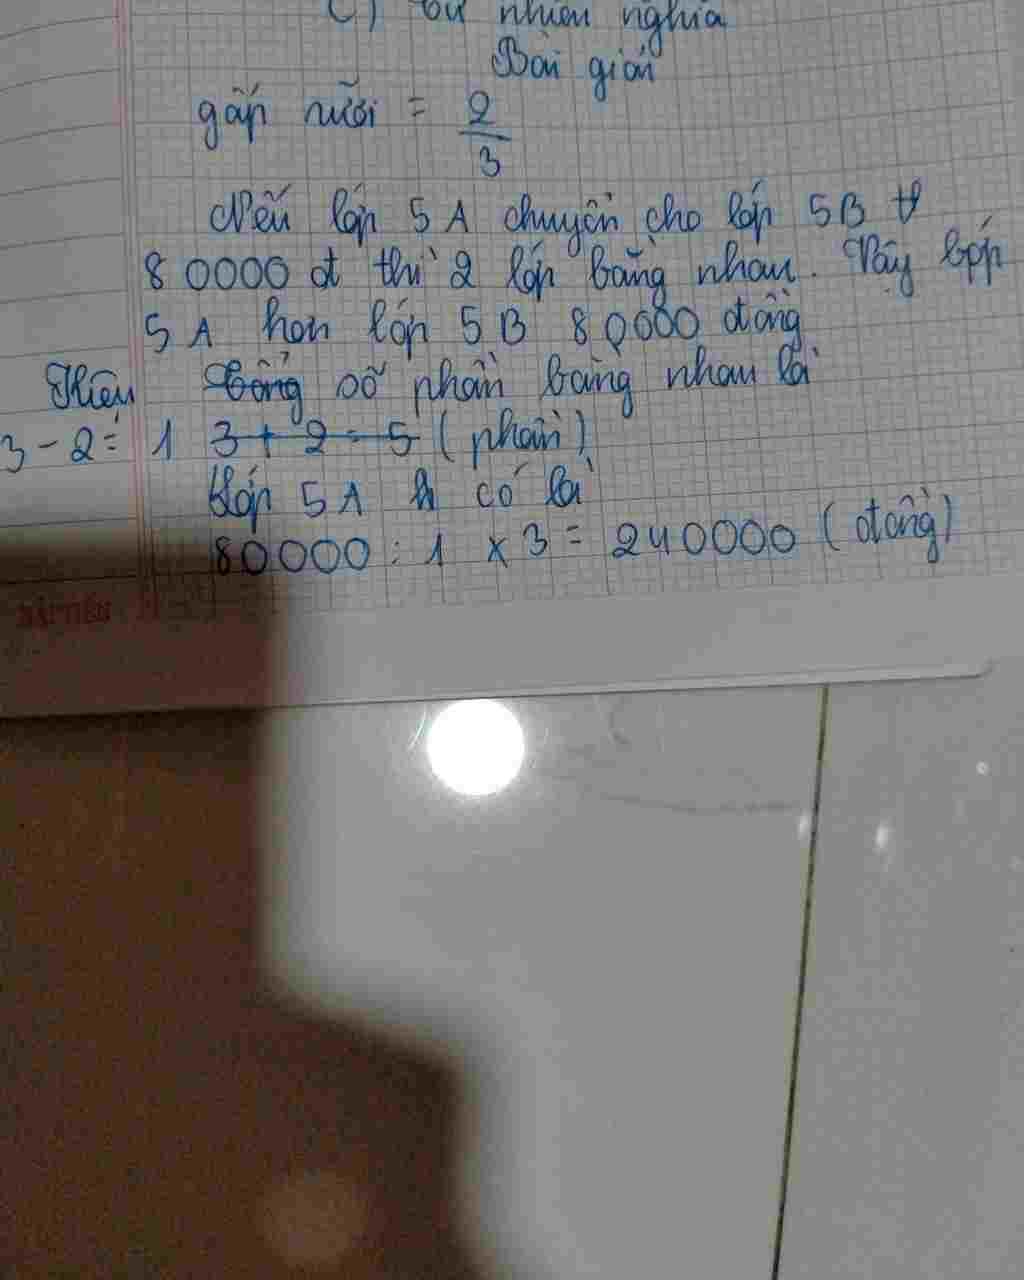 nhiên nghĩa
Bài giải
gấp rưỡi = 2/3
Nếu lớp 5A chuyển cho lớp 5B
80000 đ thì 2 lớp bằng nhau. Vậy lớp
5A hơn lớp 5B 80000 đồng
Hiệu số phần bằng nhau là
3 - 2 = 1 3 + 2 = 5 (phần)
Lớp 5A có là
80000 : 1 x 3 = 240000 (đồng)